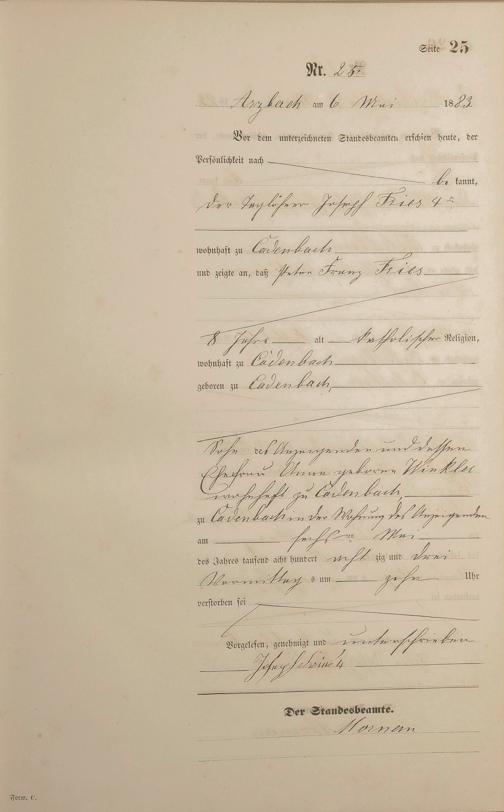 Seite 25
Nr. 25
Arzbach am 6 Mai 1883
Vor dem unterzeichneten Standesbeamten erschien heute, der
Persönlichkeit nach
be kannt,
der Taglöhner Joseph Fries 4
wohnhaft zu Cadenbach
und zeigte an, daß Peter Franz Fries
8 Jahre alt katholischer Religion,
wohnhaft zu Cadenbach
geboren zu Cadenbach,
Sohn des Anzeigenden und dessen
Ehefrau Anna geborne Winkler
wohnhaft zu Cadenbach,
zu Cadenbach in der Wohnung des Anzeigenden
am sechs Mai
des Jahres tausend acht hundert acht zig und drei
Vormittag s um zehn Uhr
verstorben sei
Vorgelesen, genehmigt und unterschrieben
Joseph 4
Der Standesbeamte.
Form. C.